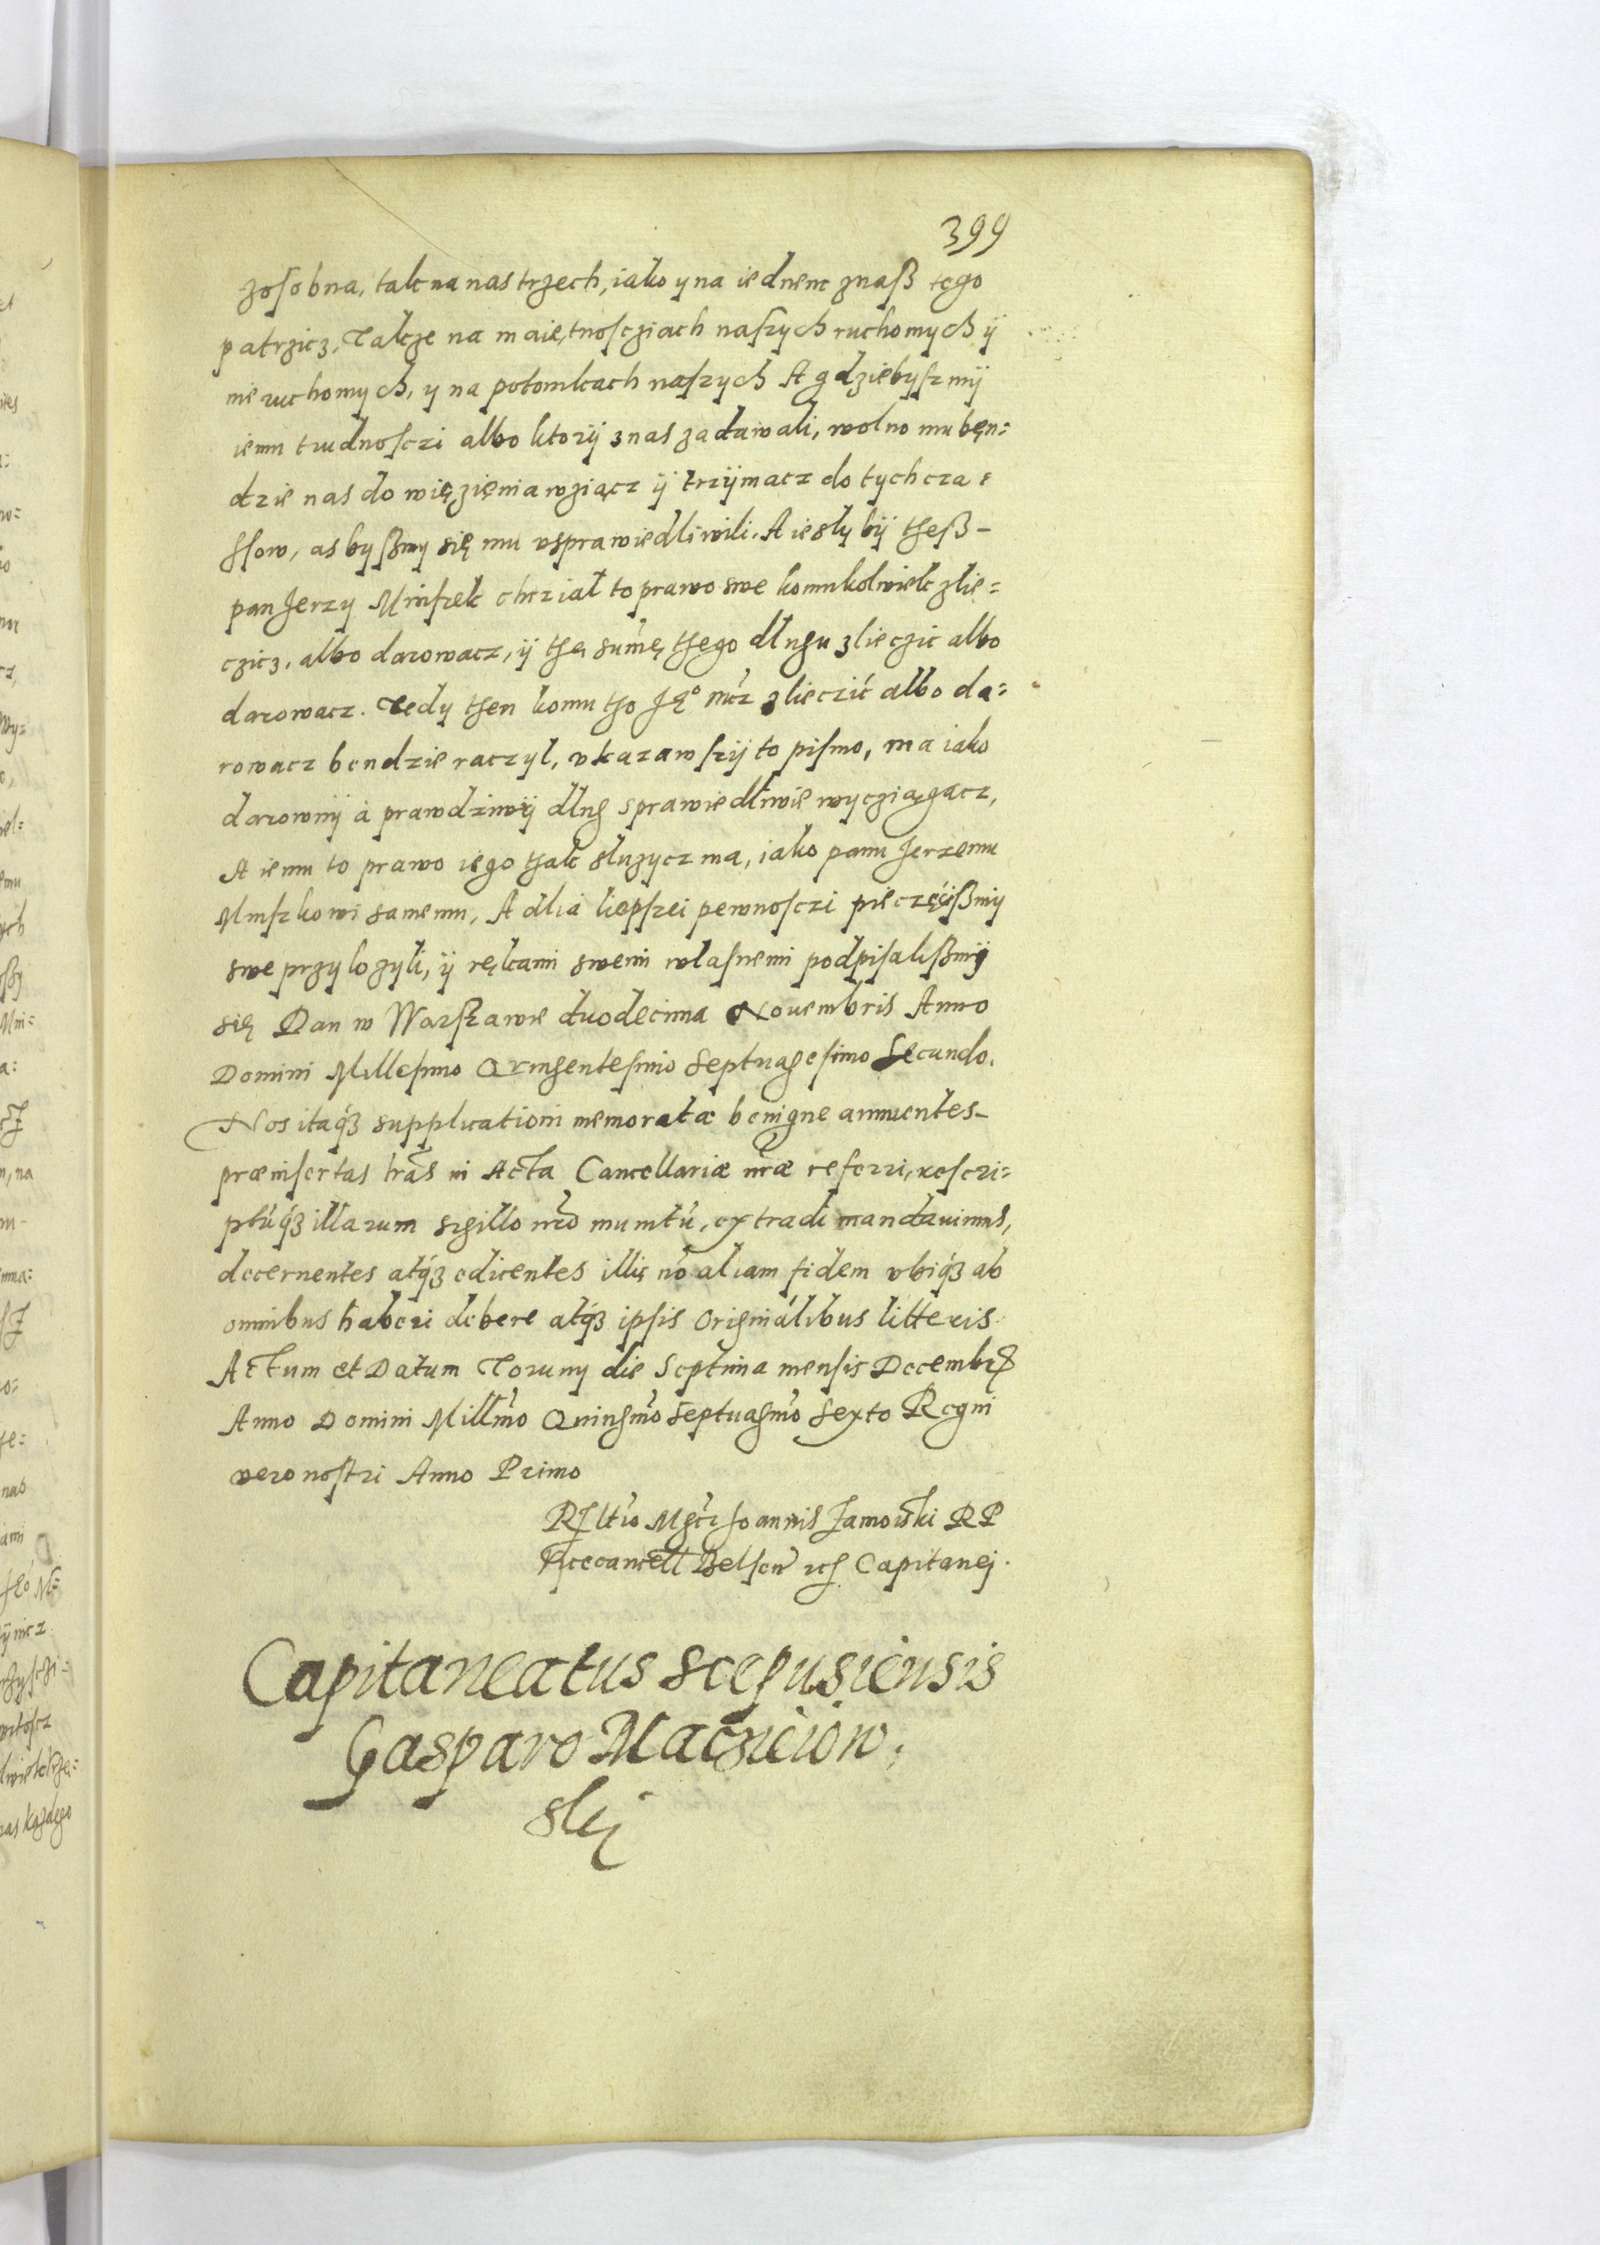 399
zosobna, tak na nas trzech, iako y na iednem znaß tego
patrzicz, Takze na maiętnosciach naszych ruchomych ÿ
nie ruchomych, y na potomkach naszych A gdziebyszmÿ
iemu trudnosczi albo ktorÿ z nas zadawali, wolno mu będ:
dzie nas do więzienia wziącz ÿ trzÿmacz do tych cza:
ssow, as byßmy się mu vsprawiedliwili. A iesly bÿ theß -
pan Jerzy Mniszek chcział to prawo swe komukolwiek zlie:
czicz, albo darowacz, ÿ thę sum̃ę thego długu zlieczic albo
darowacz. Tedy then komu tho Je° mcz zlieczić albo da:
rowacz bendzie raczyl, vkazawszÿ to pismo, ma iako
darownÿ a prawdziwÿ dlug sprawiedliwie wycziągacz,
A iemu to prawo iego thak sluzycz ma, iako panu Jerzemu
Mniszkowi samemu, A dlia liepszei pewnosczi pieczęćißmy
swe przylozyli, ÿ rękami swemi własnemi podpisalißmÿ
się Dan w Warszawie duodecima Nouembris Anno
Domini Millesimo Quingentesimo Septuagesimo Secundo.
Nos itaq́ȝ supplicationi memoratæ benigne annuentes -
præinsertas lr̃as in Acta Cancellariæ nr̃æ referri, rescri:
ptúq́ȝ illarum sigillo nr̃o munitú, extradi mandauimus,
decernentes atq́ȝ edicentes illis nõ aliam fidem vbiq́ȝ ab
omnibus haberi debere atq́ȝ ipsis originalibus litteris.
Actum et Datum Toruny die Septima mensis Decembrꝭ
Anno Domini Millm̃o Quingm̃o Septuagm̃o Sexto Regni
vero nostri Anno Primo
Rłtio Mgci Joannis Zamoiski R P
Vicecancell Belsen̄ ꝛcꝭ Capitanej.
Capitaneatus Scepusiensis
Gasparo Macieiow.
skj